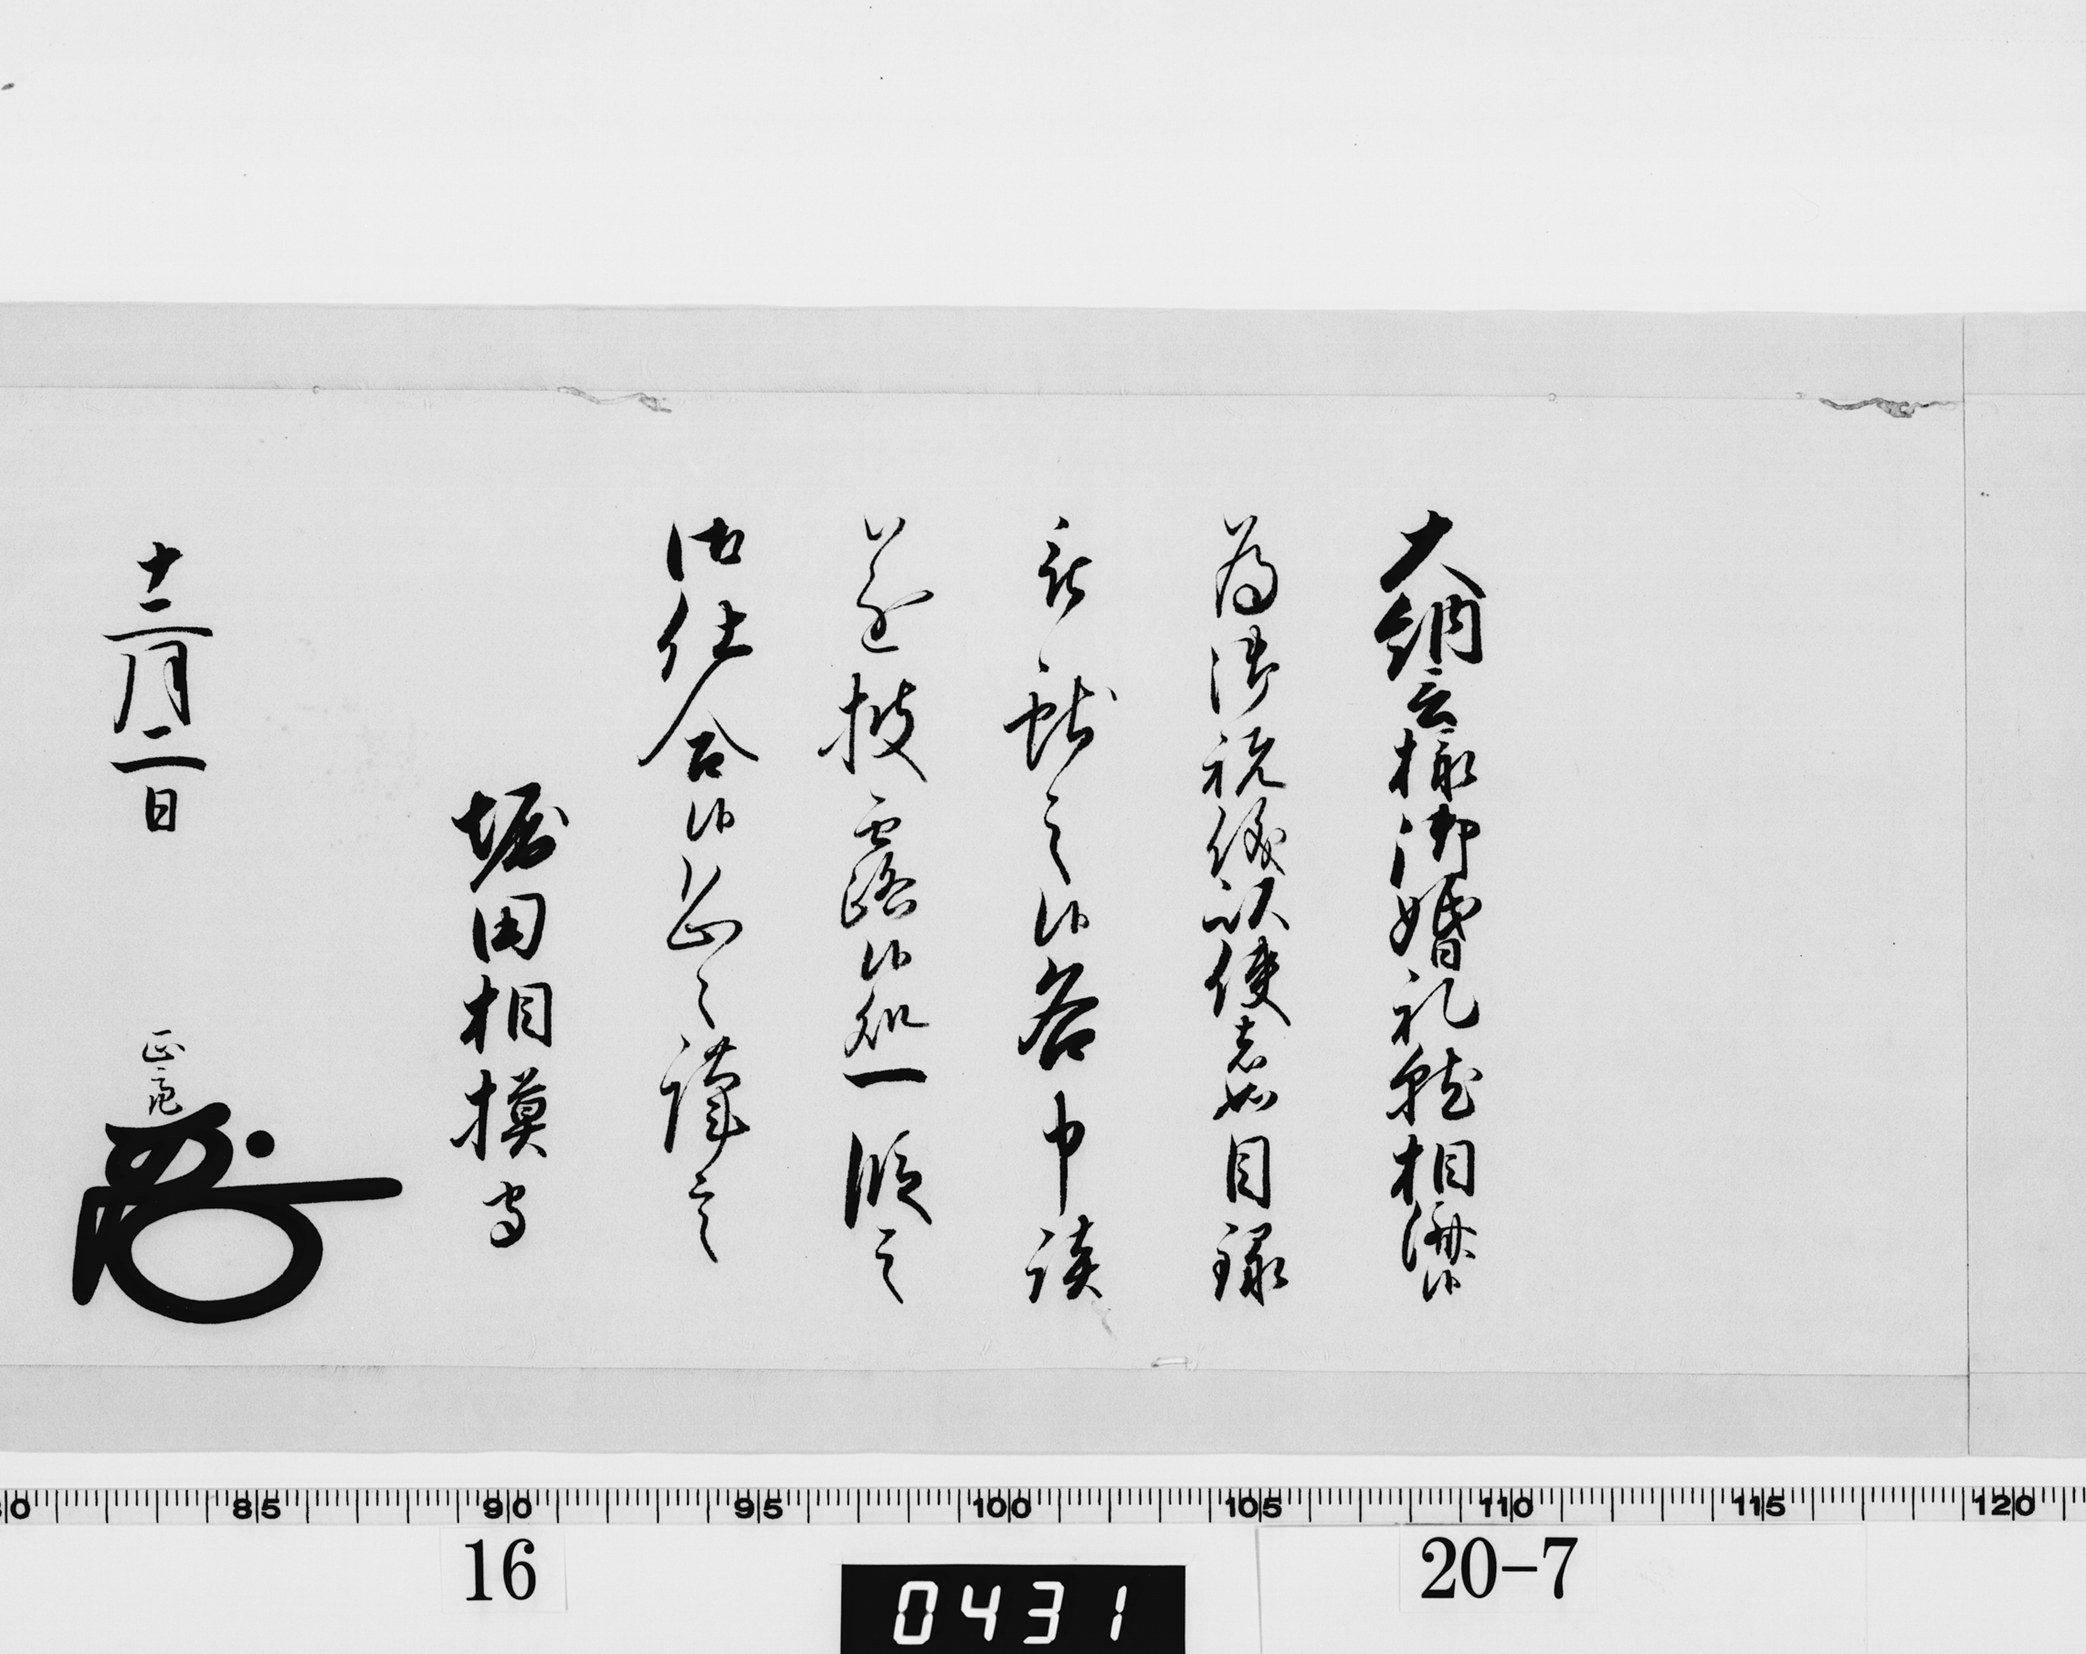 大納言様御婚礼就相済候
為御祝儀以使者如目録
被献之候各申談
遂披露候処一段之
御仕合候恐々謹言
堀田相模守
十二月二日 正亮
85 90 95 100 105 110 115 120
16 0431 20-7